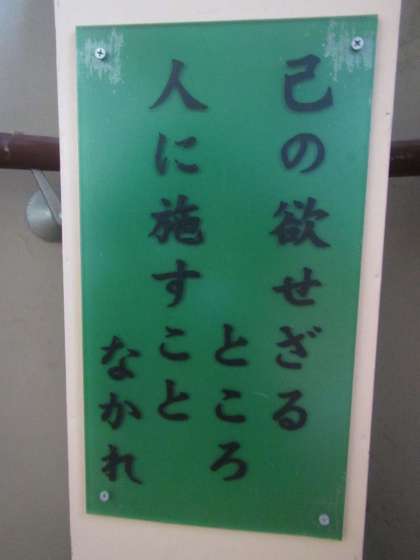 己の欲せざる
ところ
人に施すこと
なかれ